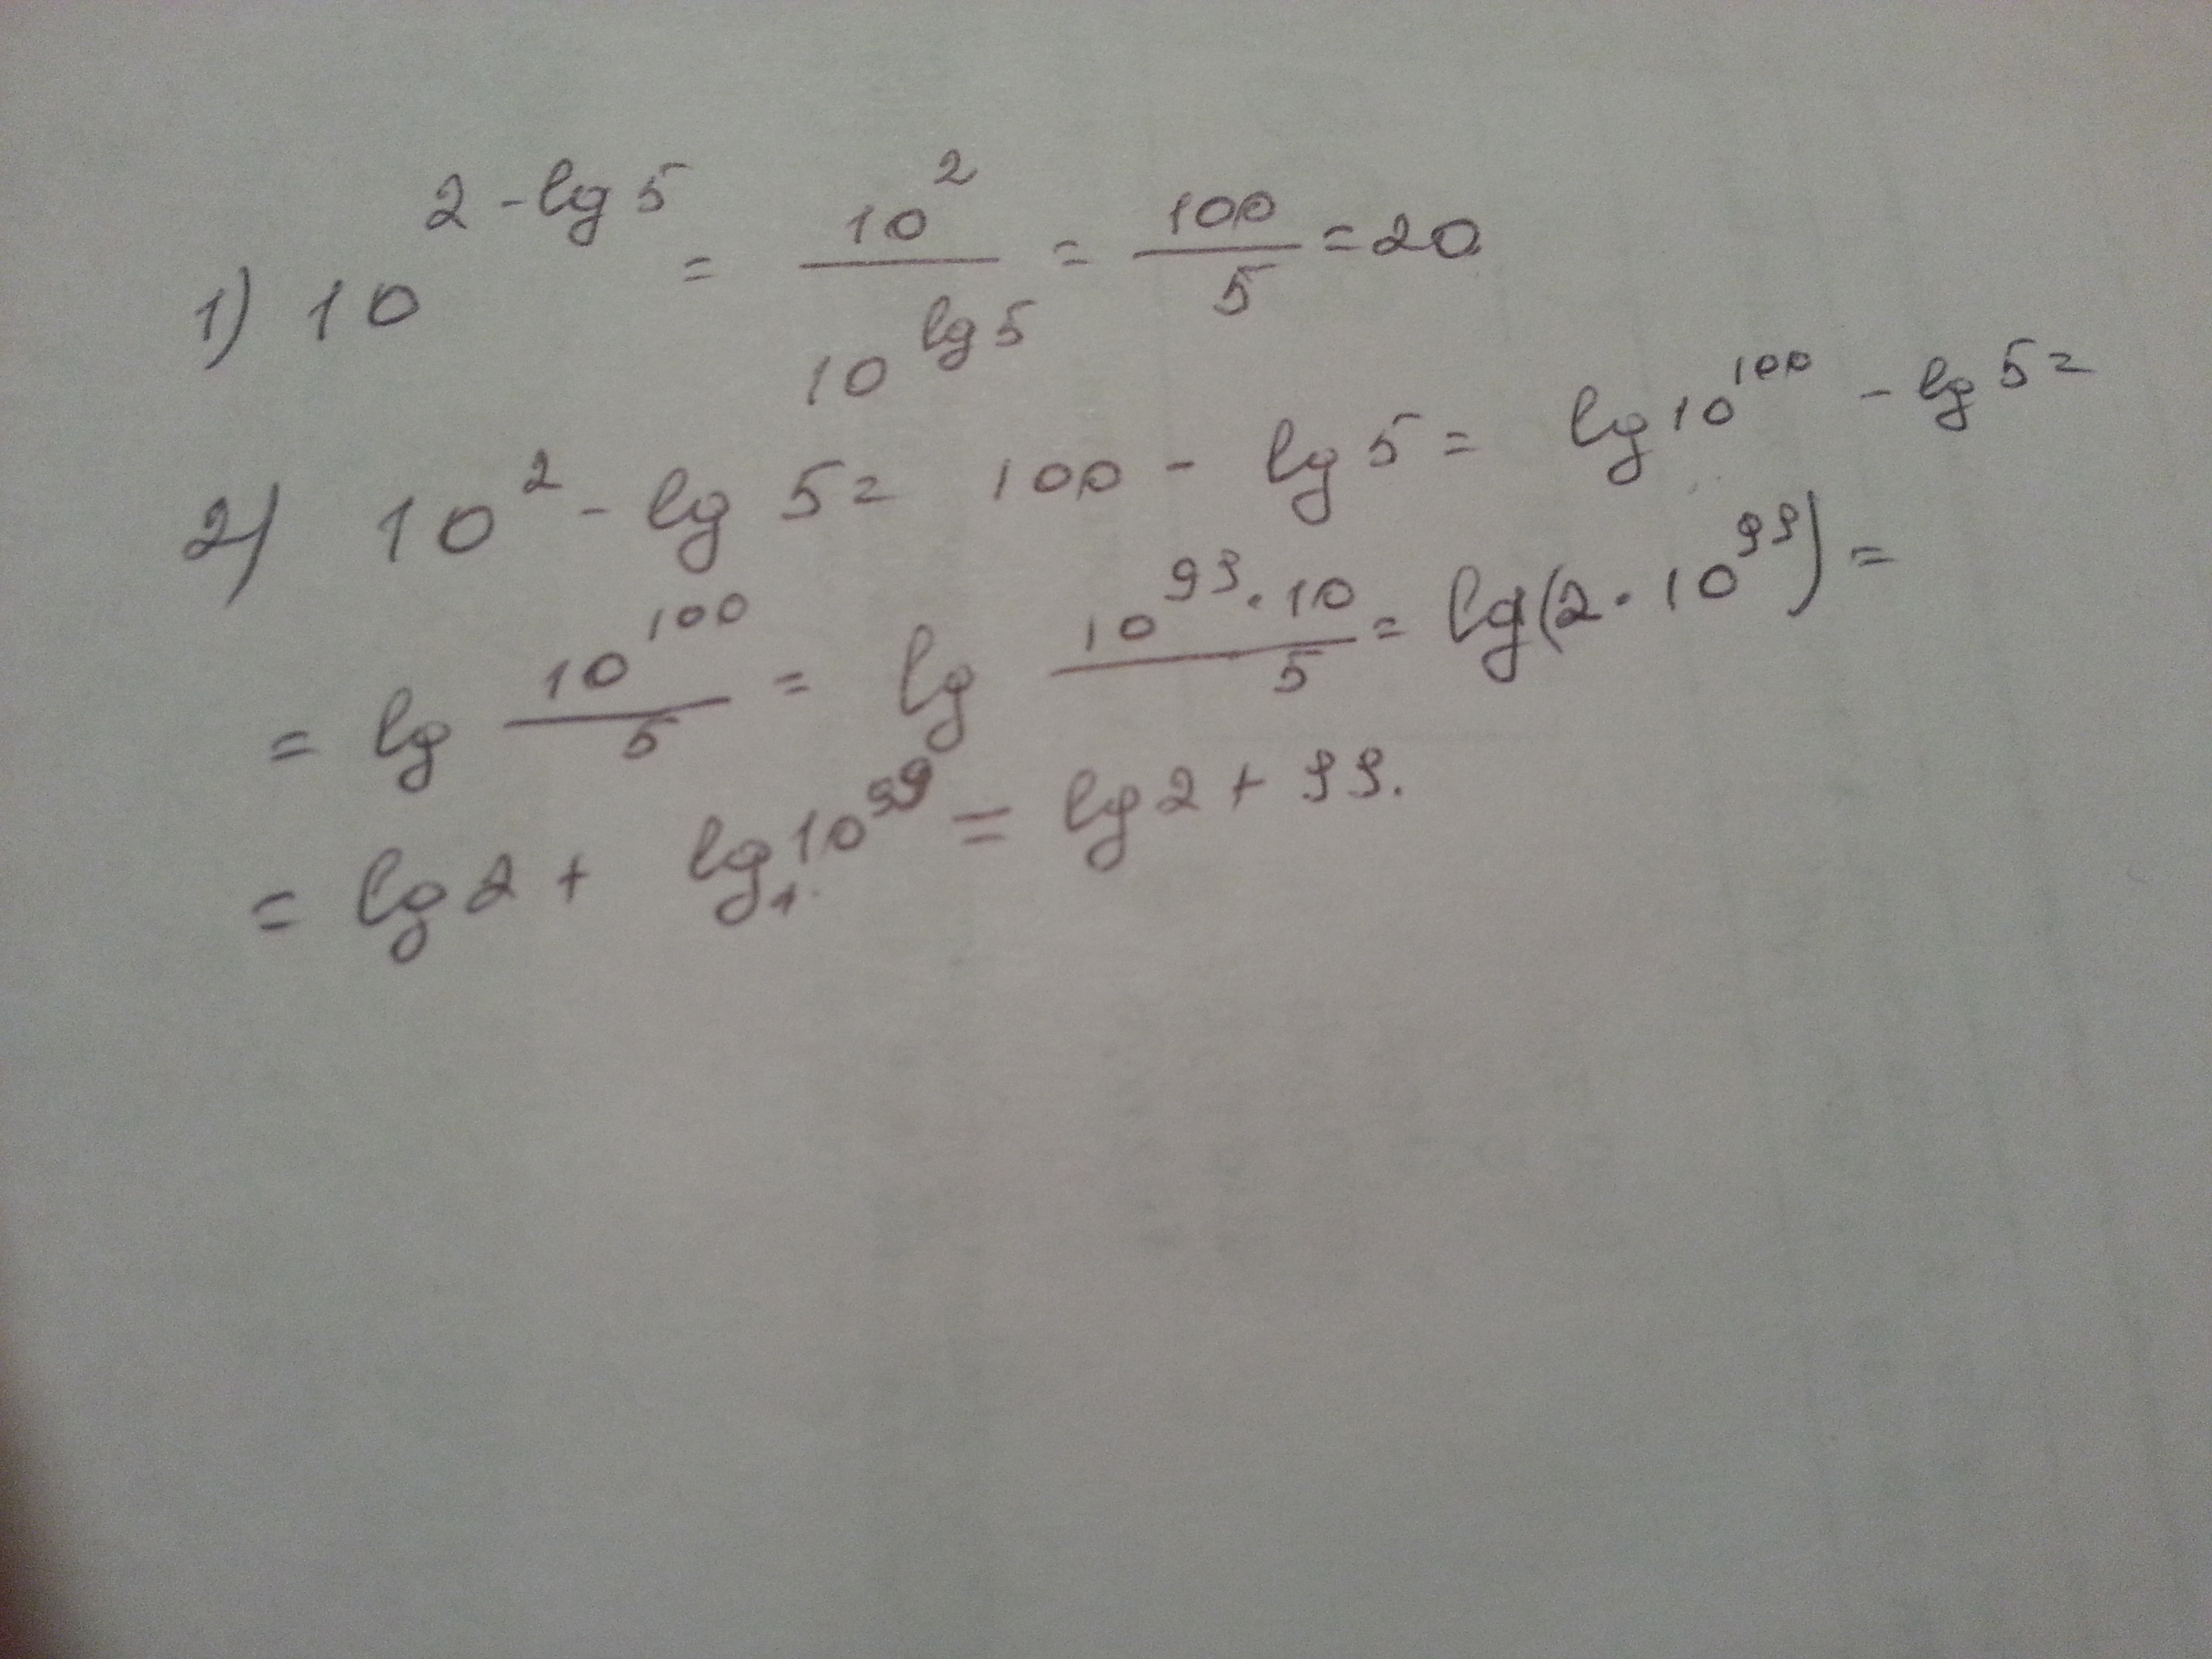 1) 10^(2-lg 5) = 10^2 / 10^(lg 5) = 100/5 = 20
2) 10^2 - lg 5 = 100 - lg 5 = lg 10^100 - lg 5 =
= lg 10^100/5 = lg (10^99 · 10)/5 = lg(2 · 10^99) =
= lg 2 + lg 10^99 = lg 2 + 99.